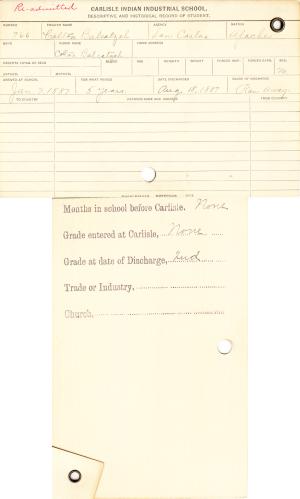 Re-admitted
CARLISLE INDIAN INDUSTRIAL SCHOOL,
DESCRIPTIVE AND HISTORICAL RECORD OF STUDENT.
NUMBER ENGLISH NAME AGENCY NATION
766 San Carlos Apache
BAND INDIAN NAME HOME ADDRESS
PARENTS LIVING OR DEAD BLOOD AGE HEIGHT WEIGHT FORCED INSP. FORCED EXPR. SEX
FATHER, MOTHER, M
ARRIVED AT SCHOOL FOR WHAT PERIOD DATE DISCHARGED CAUSE OF DISCHARGE
Jan 7, 1887 5 years Aug 18, 1887 Ran away
TO COUNTRY PATRONS NAME AND ADDRESS FROM COUNTRY
Months in school before Carlisle, None
Grade entered at Carlisle, None
Grade at date of Discharge, 2nd
Trade or Industry,
Church,